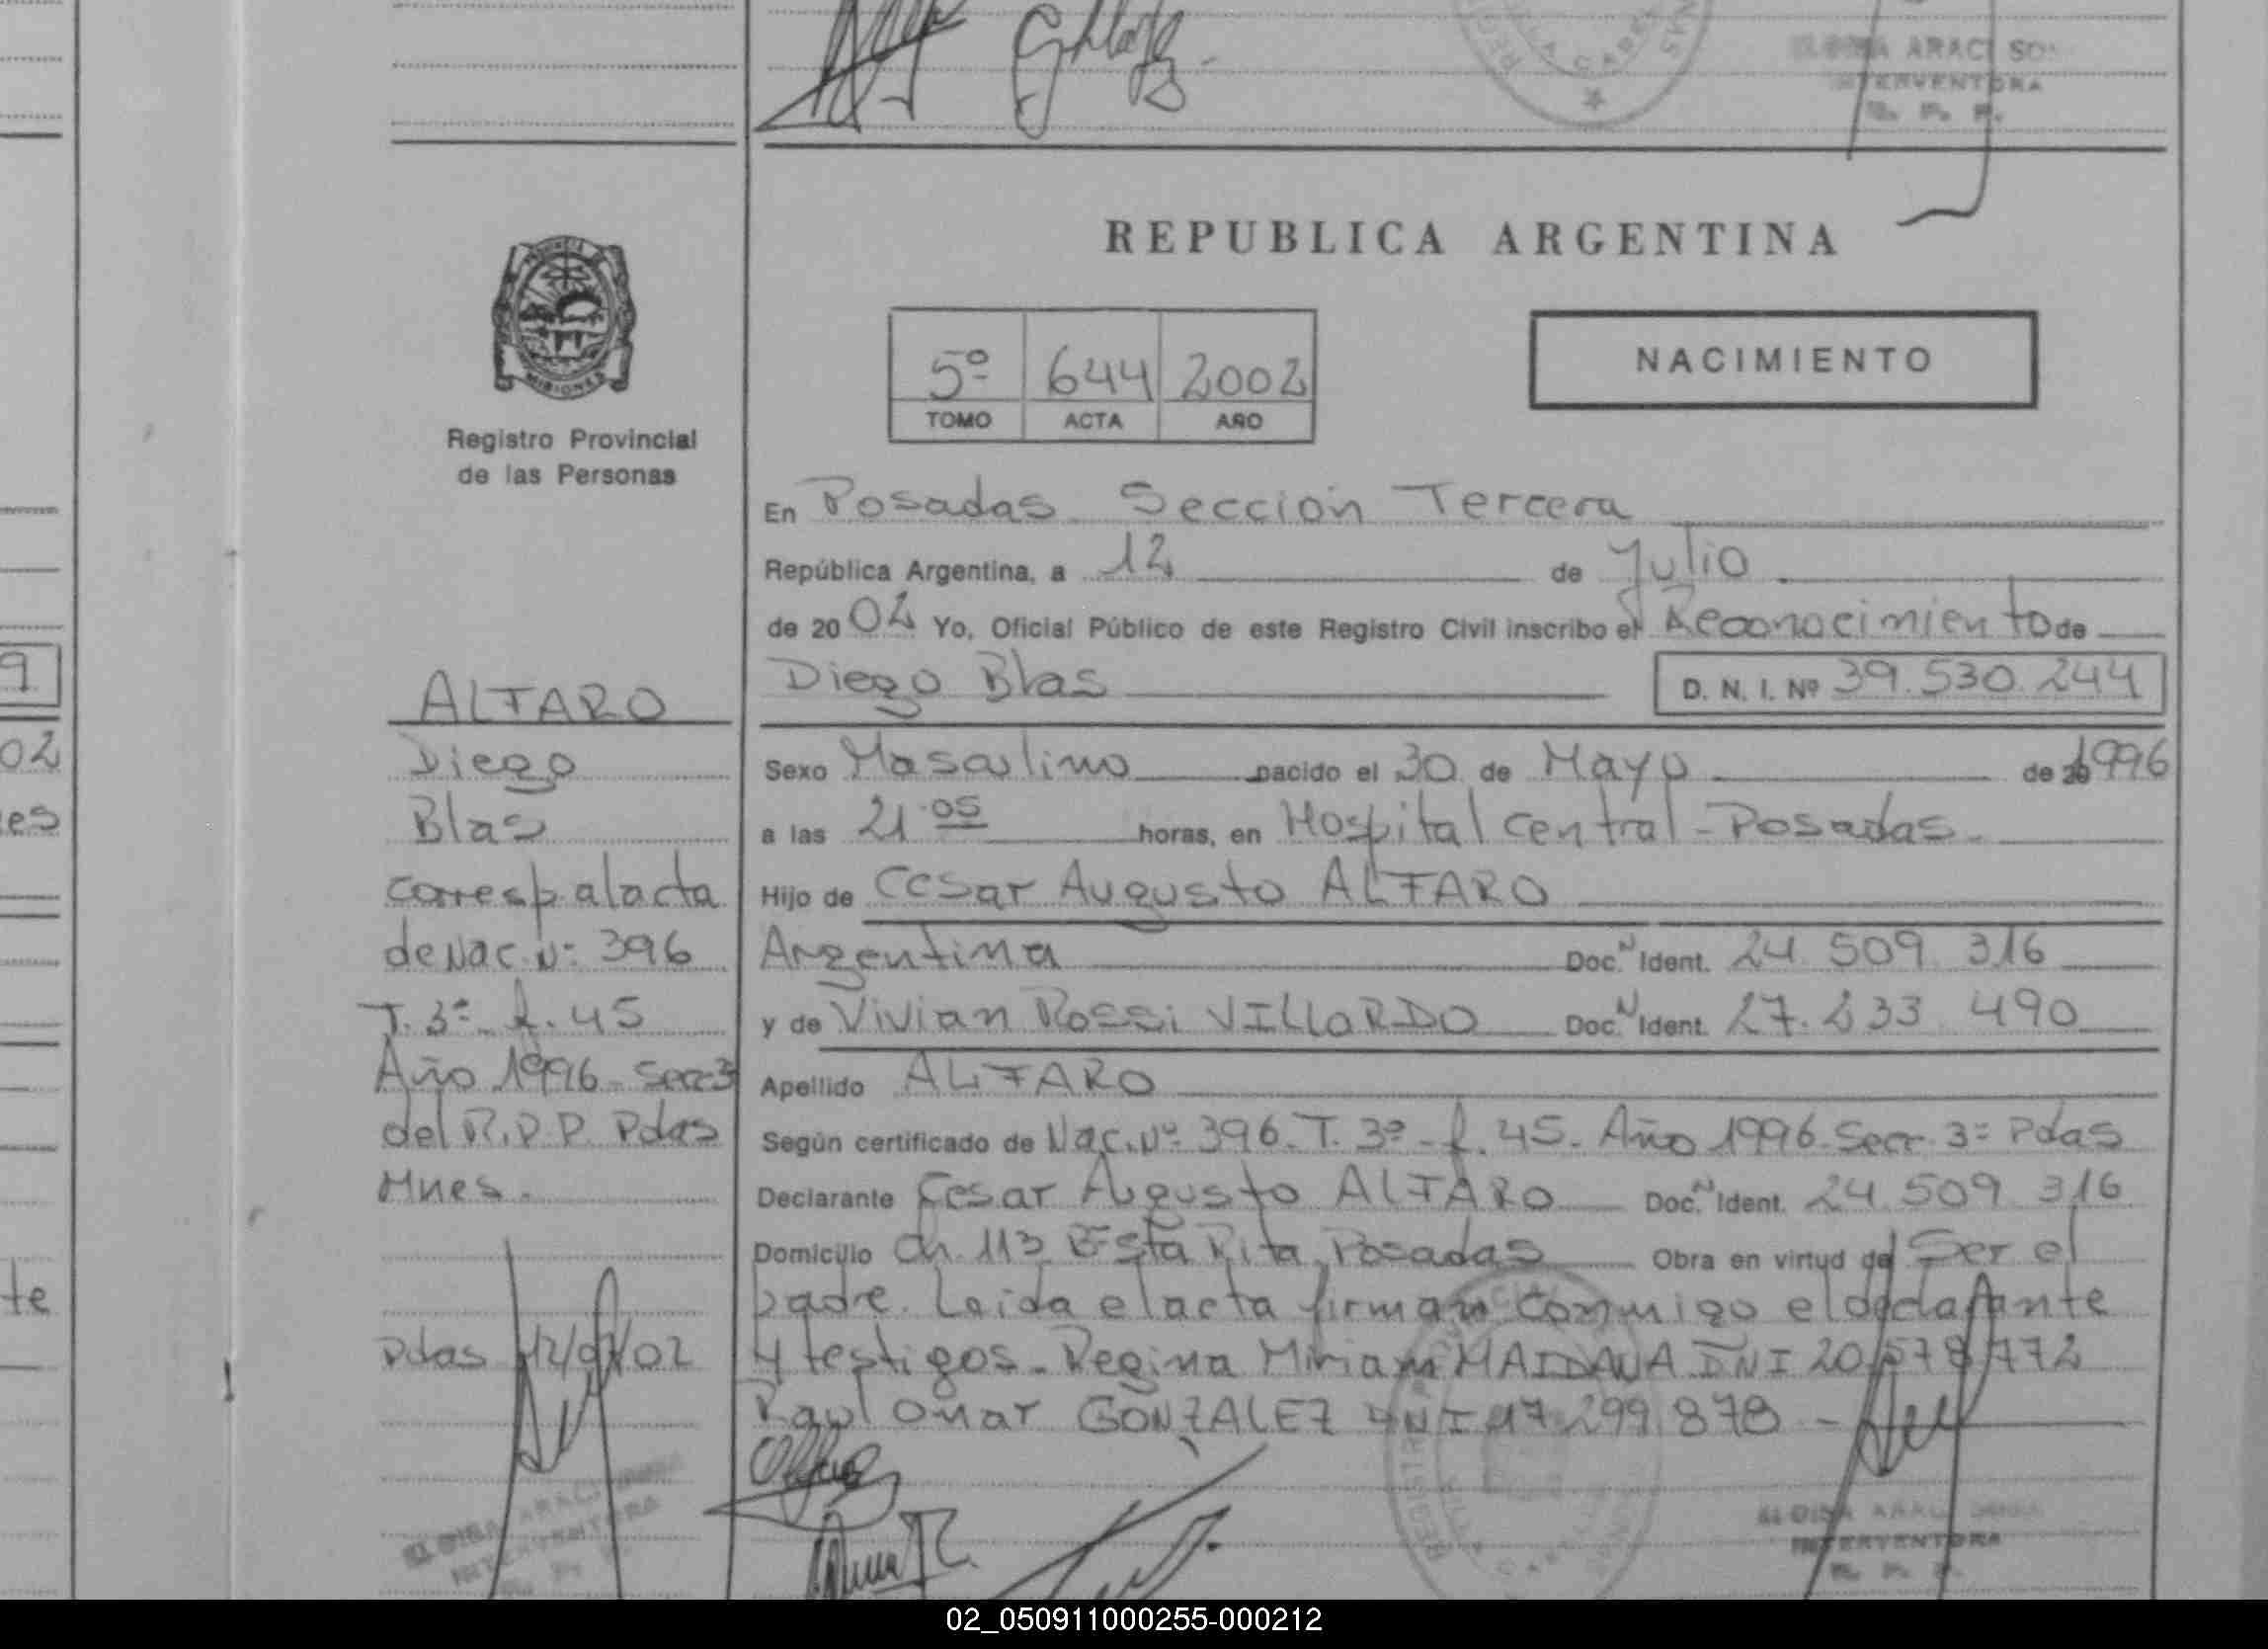 REPUBLICA ARGENTINA
PROVINCIA
MISIONES
Registro Provincial
de las Personas
5º 644 2002
TOMO ACTA AÑO
NACIMIENTO
En Posadas Sección Tercera
República Argentina, a 12 de Julio
de 2002 Yo, Oficial Público de este Registro Civil inscribo el Reconocimiento de
Diego Blas D. N. I. Nº 39.530.244
Sexo Masculino nacido el 30 de Mayo de 1996
a las 21.05 horas, en Hospital Central - Posadas.
Hijo de Cesar Augusto ALFARO
Argentina Doc. N Ident. 24.509.316
y de Vivian Rossi VILLORDO Doc. N Ident. 27.233.490
Apellido ALFARO
Según certificado de Nac. Nº 396. T. 3º - f. 45 - Año 1996 - Secc. 3º Pdas
Declarante Cesar Augusto ALFARO Doc. N Ident. 24.509.316
Domicilio Ch. 113 Bº Sta Rita, Posadas Obra en virtud de Ser el
padre. Leida el acta firman conmigo el declarante
y testigos - Regina Miriam MAIDANA DNI 20.578.772
Raul Omar GONZALEZ DNI 17.299.878 -
ALFARO
Diego
Blas
corresp. al acta
de Nac. Nº 396
T. 3º f. 45
Año 1996 - Secc 3
del R.P.P. Pdas
Mnes.
Pdas 12/07/02
INTERVENTORA
R. P. P.
02_050911000255-000212